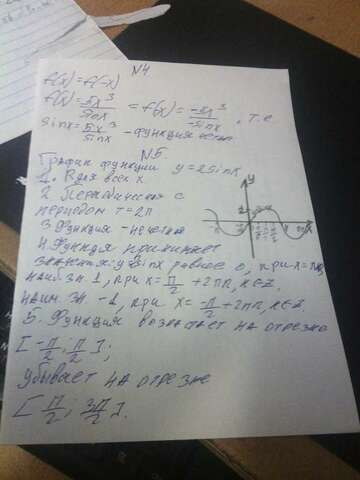 N4
f(x) = f(-x)
f(x) = 5x³/sinx = f(x) = -5x³/-sinx, т.е
sinx = 5x³/sinx - функция
N5
График функции y = 2sinx
1. для всех x
2. Периодическая с
периодом T = 2π
3 Функция - нечетна
4 Функция принимает
значения y sinx равное 0, при x = πn,
наиб зн 1, при x = π/2 + 2πn, n∈Z,
наим. зн -1, при x = -π/2 + 2πn, n∈Z
5. Функция возрастает на отрезке
[-π/2; π/2];
убывает на отрезке
[π/2; 3π/2].
y
x